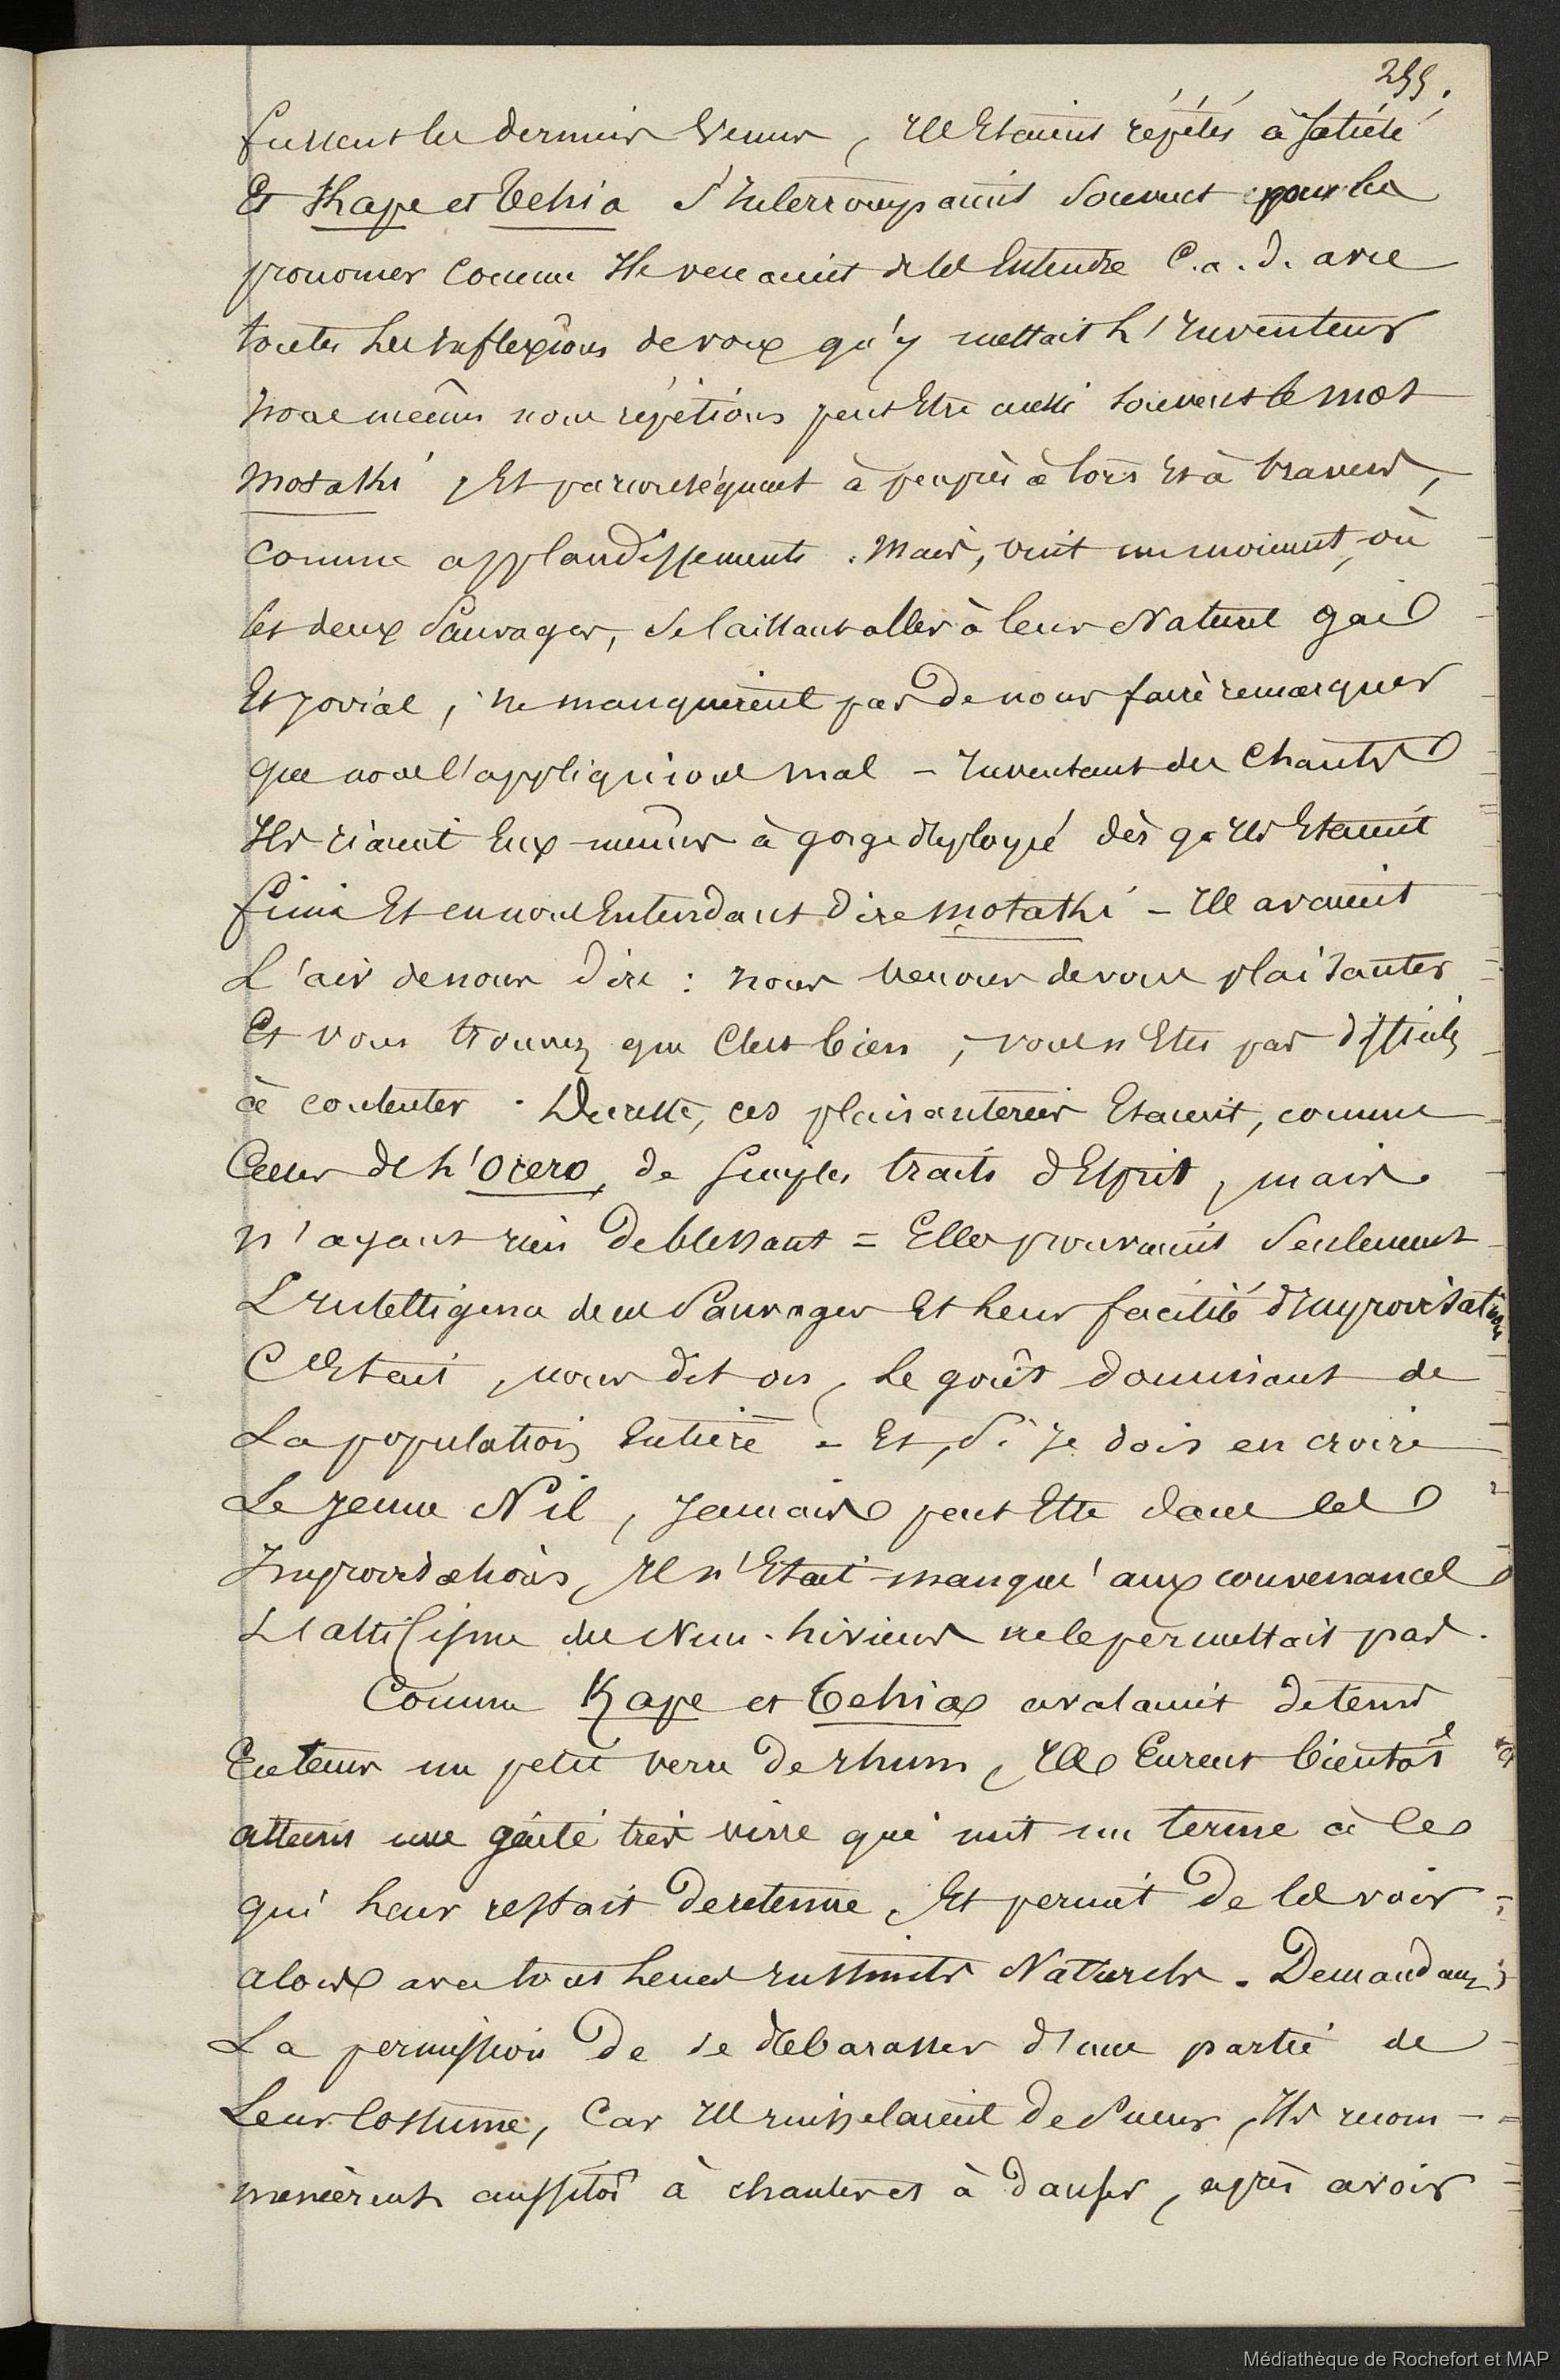 255.
fussent les derniers venus, Ils Etaient répétés à satiété
Et Kape et Tehia s'Interrompaient souvent pour les
prononcer comme Ils venaient de les Entendre C.a.d. avec
toutes les Inflexions de voix qu'y mettait L'Inventeur
Nous mêmes nous répétions peut Etre aussi souvent le mot
Motathi, Et par conséquent à peu près à tors Et à travers,
comme applaudissements. Mais, vint un moment, où
les deux Sauvages, se laissant aller à leur Naturel gai
Et jovial, ne manquèrent pas de nous faire remarquer
que nous l'appliquions mal - Inventant des Chants
Ils riaient Eux-mêmes à gorge déployée dès qu'Ils Etaient
finis Et en nous Entendant dire Motathi - Ils avaient
L'air de nous dire : nous venons de vous plaisanter
Et vous trouvez que C'est bien, vous n'Etes pas difficiles
à contenter. Du reste, ces plaisanteries Etaient, comme
Celles de L'Orero, de simples traits d'Esprit, mais
n'ayant rien de blessant = Elles prouvaient Seulement
L'Intelligence de ces Sauvages Et Leur facilité d'Improvisation
C'Etait, nous dit on, Le goût dominant de
La population Entière - Et, Si Je dois en croire
Le Jeune Nil, Jamais peut Etre dans ces
Improvisations, Il n'Etait manqué aux convenances
des Nou-hiviens ne le permettait pas.
Comme Kape et Tehia avalaient de tems
En tems un petit verre de rhum, Ils Eurent bientôt
atteint une gaité très vive qui mit un terme à ce
qui Leur restait de retenue, Et permit de les voir
alors avec tous Leurs Instincts Naturels. Demandant
La permission de se débarasser d'une partie de
Leur Costume, Car Ils ruisselaient de Sueur, Ils recom-
mencèrent aussitôt à chanter et à danser, après avoir
Médiathèque de Rochefort et MAP